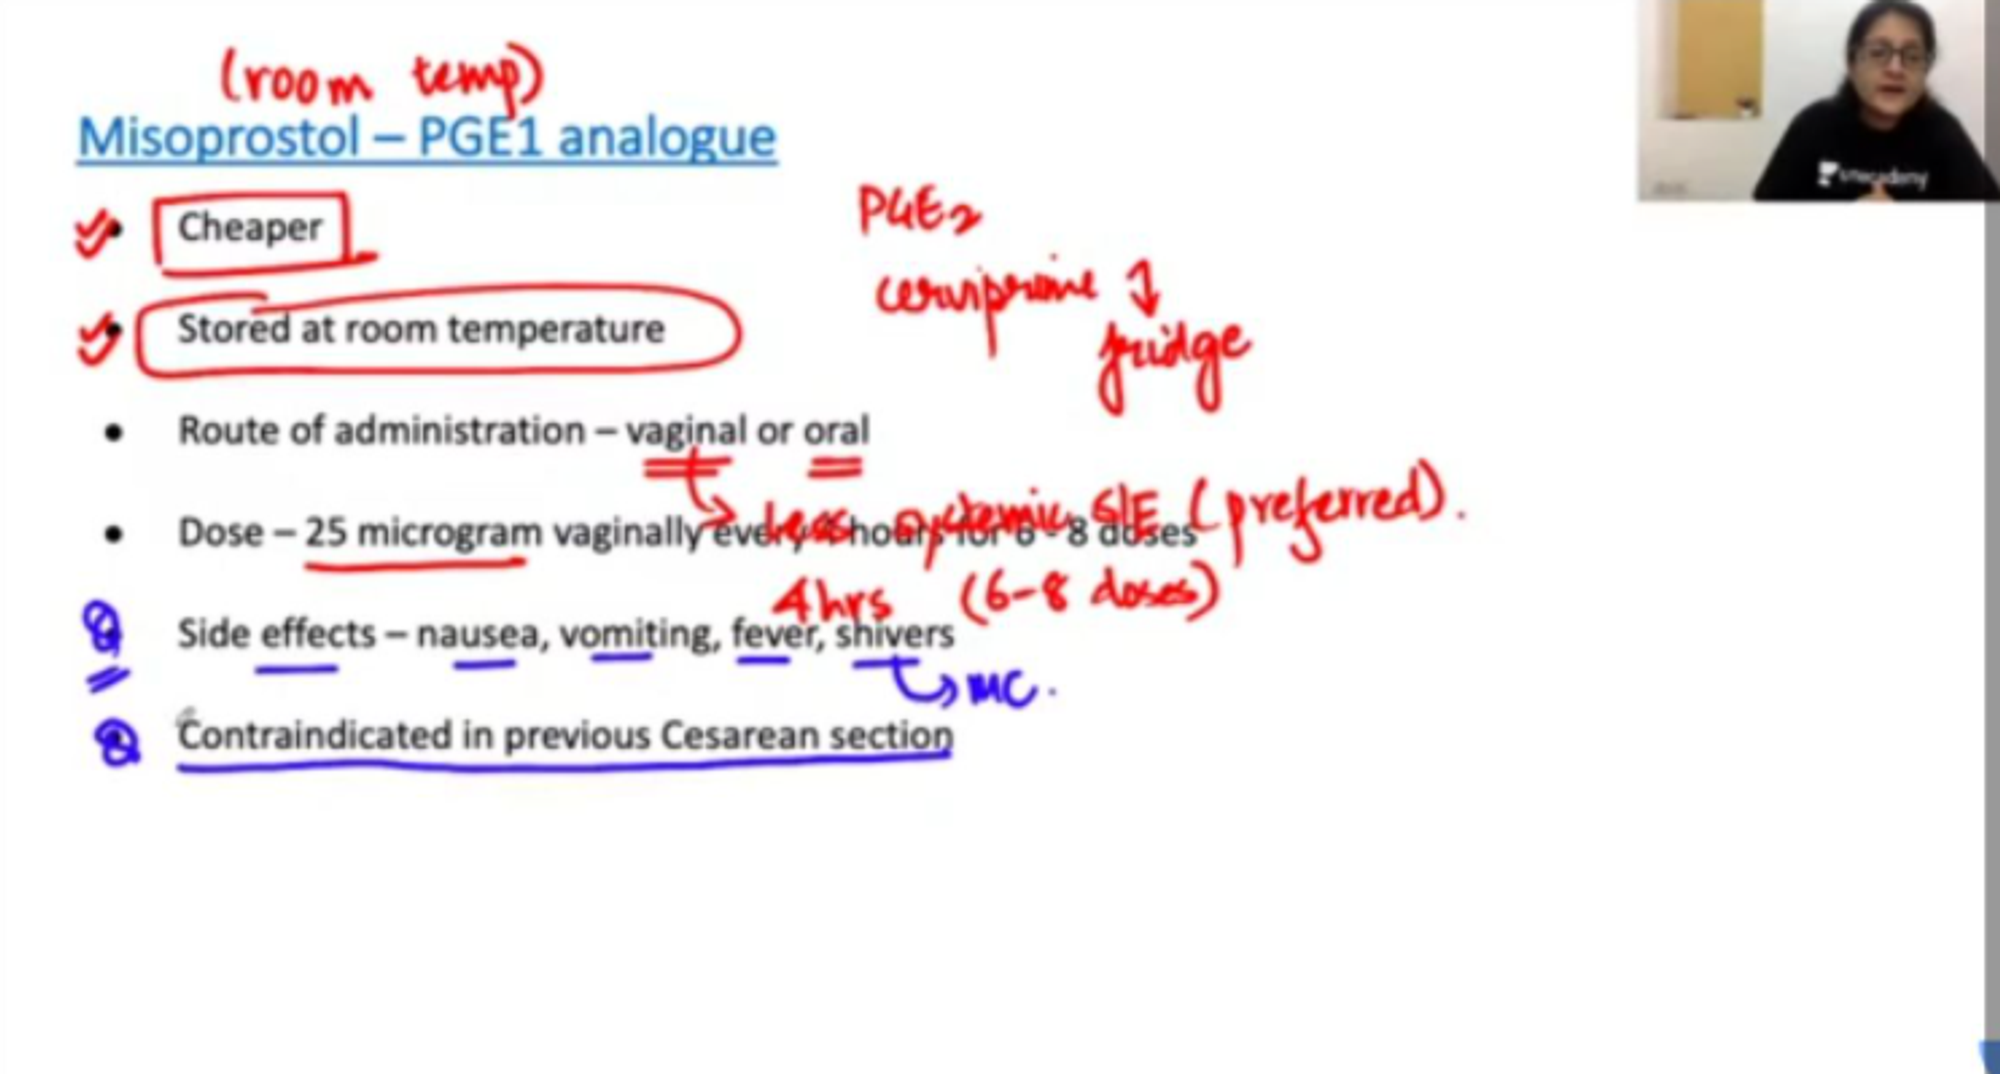 (room temp)
Misoprostol – PGE1 analogue
• Cheaper
PGE2
cerviprime
fridge
• Stored at room temperature
• Route of administration – vaginal or oral
less systemic S/E (preferred).
• Dose – 25 microgram vaginally every 4 hours for 6 - 8 doses
4 hrs (6-8 doses)
• Side effects – nausea, vomiting, fever, shivers
MC.
Contraindicated in previous Cesarean section
unacademy